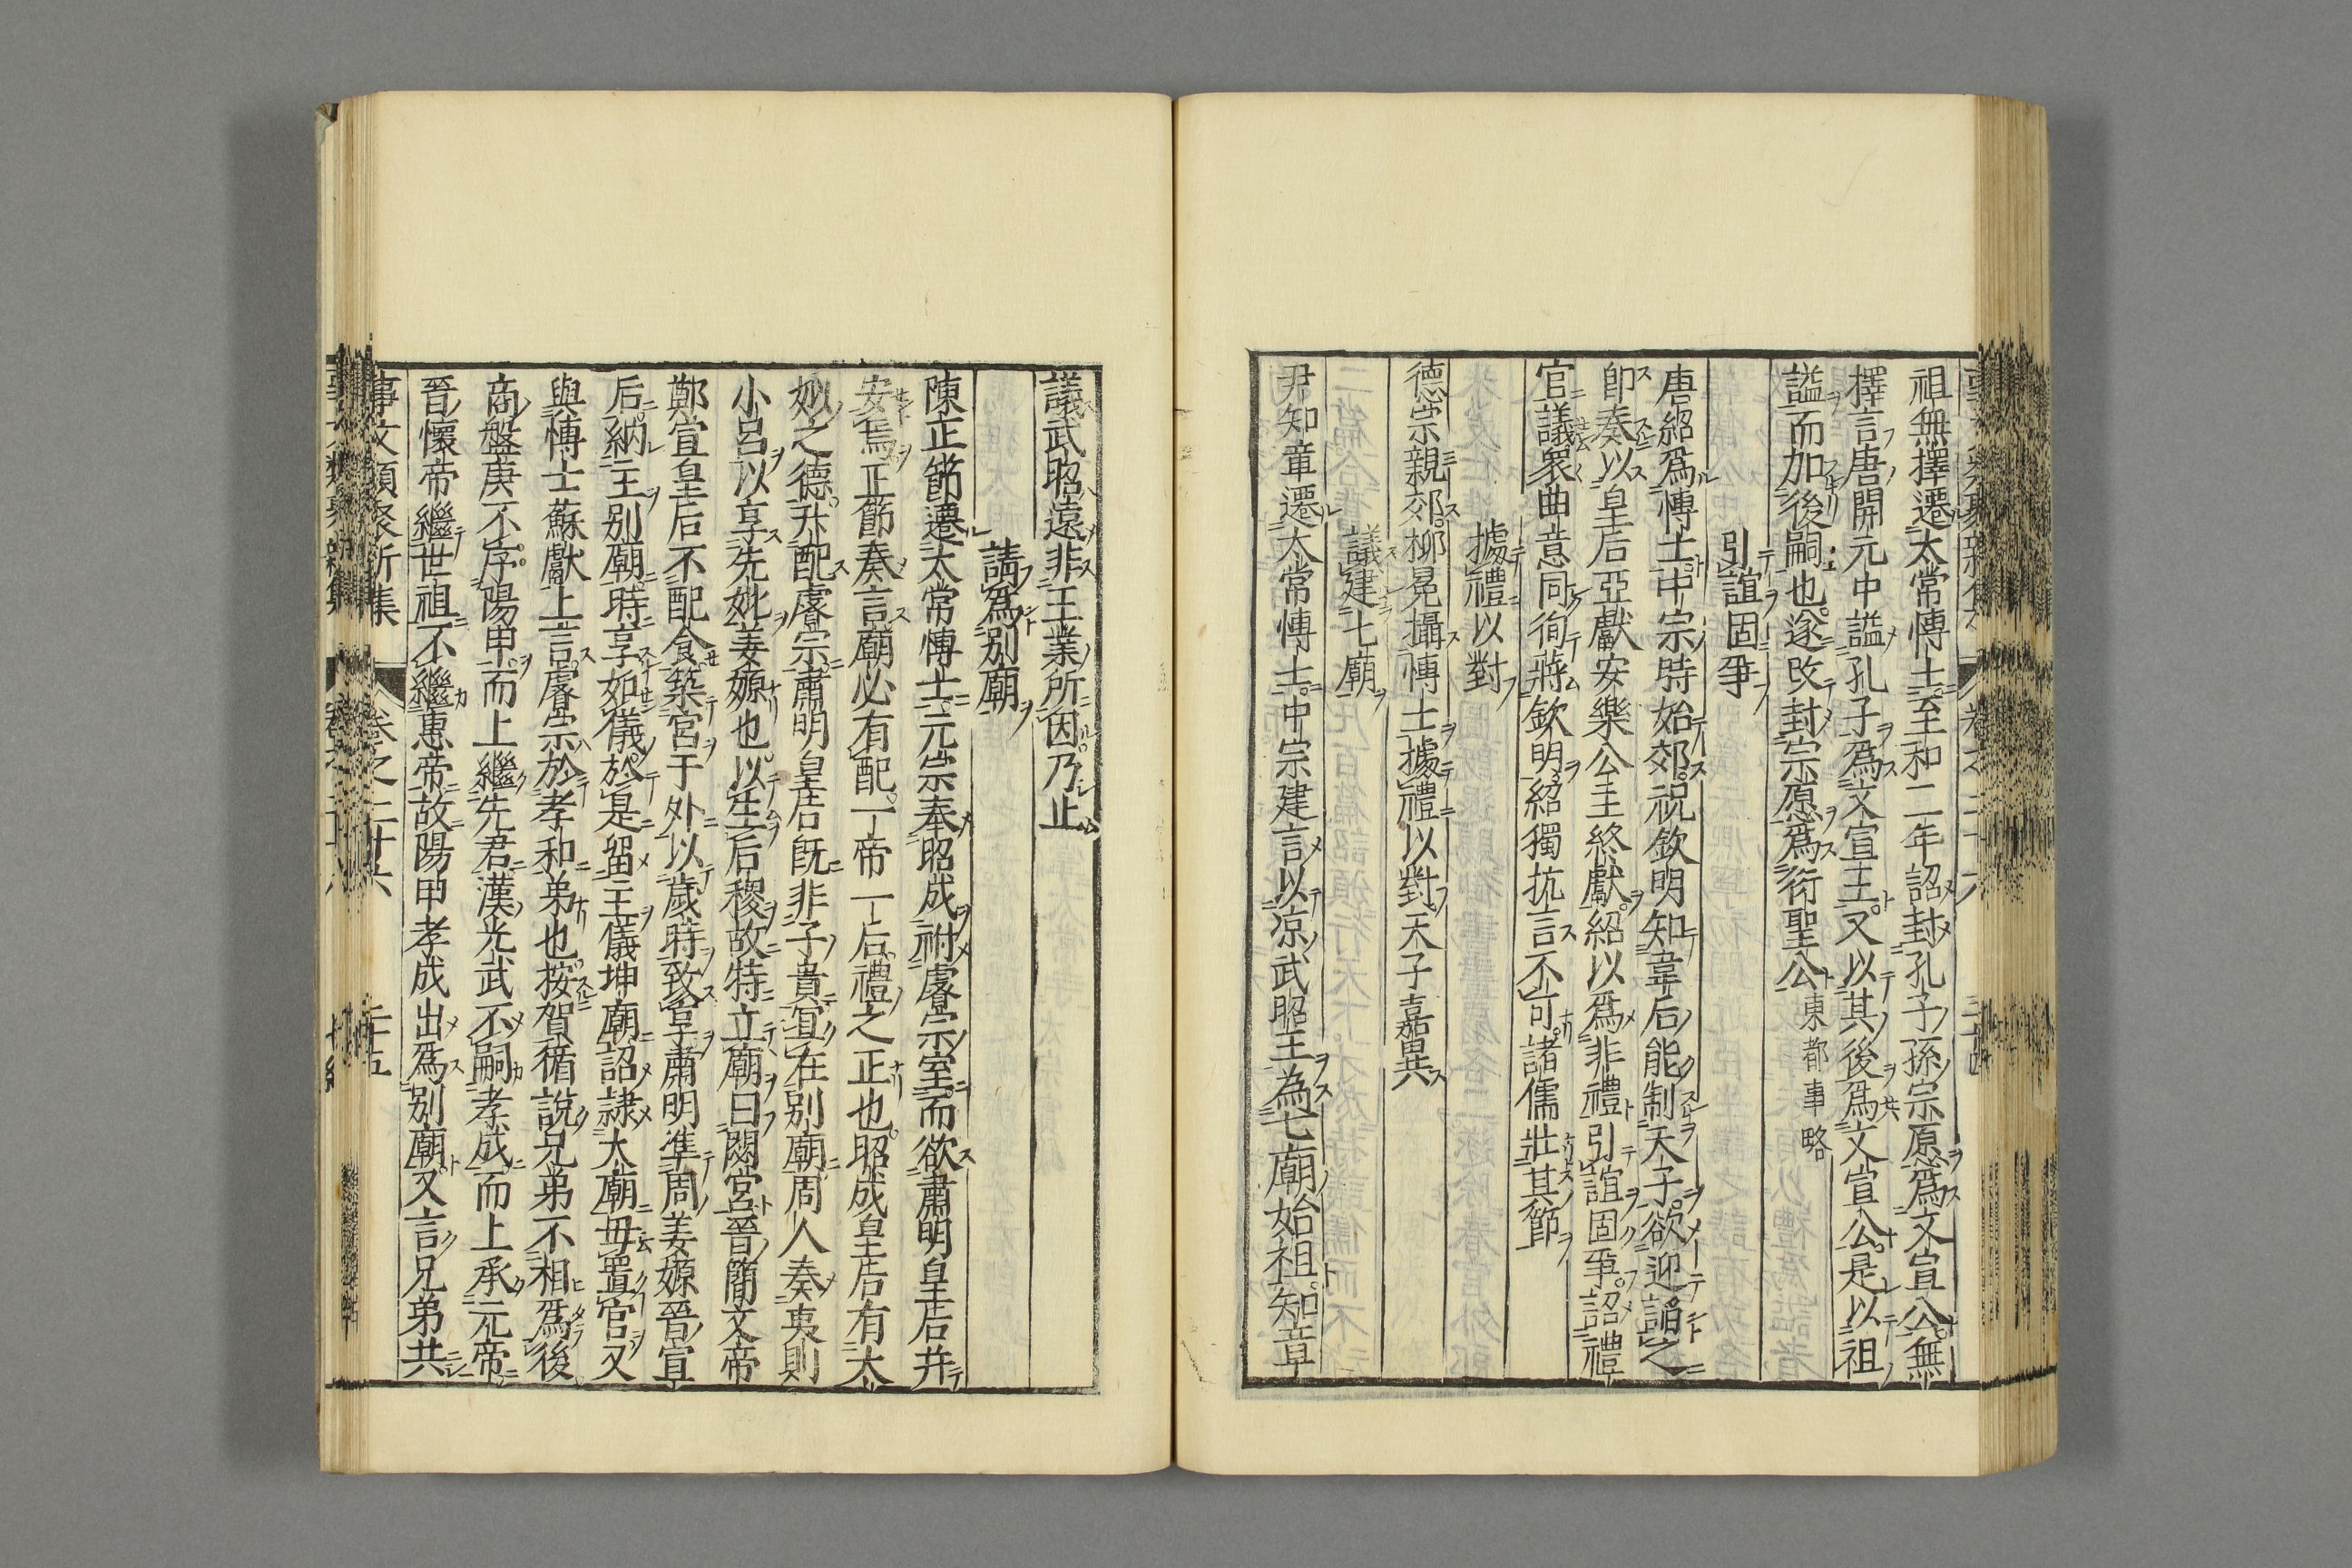 祖無擇遷太常愽士至和二年詔封孔子孫宗愿爲文宣公無
擇言唐開元中謚孔子爲文宣王又以其後爲文宣公是以祖
謚而加後嗣也遂改封宗愿爲衍聖公東都事略
引誼固爭
唐紹爲愽士中宗時始郊祝欽明知韋后能制天子欲迎諂之
即奏以皇后亞獻安樂公主終獻紹以爲非禮引誼固爭詔禮
官議衆曲意同徇蔣欽明紹獨抗言不可諸儒壯其節
據禮以對
德宗親郊柳冕攝愽士據禮以對天子嘉異
議建七廟
尹知章遷太常愽士中宗建言以涼武昭王為七廟始祖知章
議武昭遠非王業所因乃止
請爲別廟
陳正節遷太常愽士元宗奉昭成祔睿宗室而欲肅明皇后幷
安焉正節奏言廟必有配一帝一后禮之正也昭成皇后有太
姒之德升配睿宗肅明皇后旣非子貴宜在別廟周人奏夷則
小呂以享先妣姜嫄也以生后稷故特立廟曰閟宮晉簡文帝
鄭宣皇后不配食築宮于外以歲時致享肅明準周姜嫄晉宣
后納主別廟時享如儀於是留主儀坤廟詔隸太廟毋置官又
與愽士蘇獻上言睿宗於孝和弟也按賀循說兄弟不相爲後
商盤庚不序陽甲而上繼先君漢光武不嗣孝成而上承元帝
晉懷帝繼世祖不繼惠帝故陽甲孝成出爲別廟又言兄弟共
事文類聚新集
卷之二十六
二十五